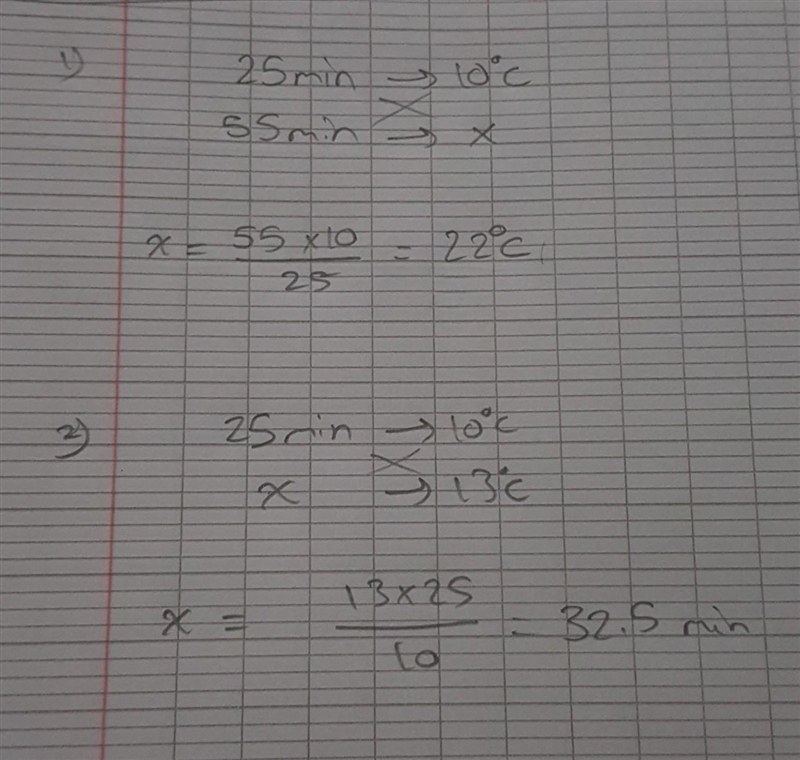 1) 25min → 10°C
55min → x
x = 55 x 10 / 25 = 22°C
2) 25min → 10°C
x → 13°C
x = 13 x 25 / 10 = 32.5 min